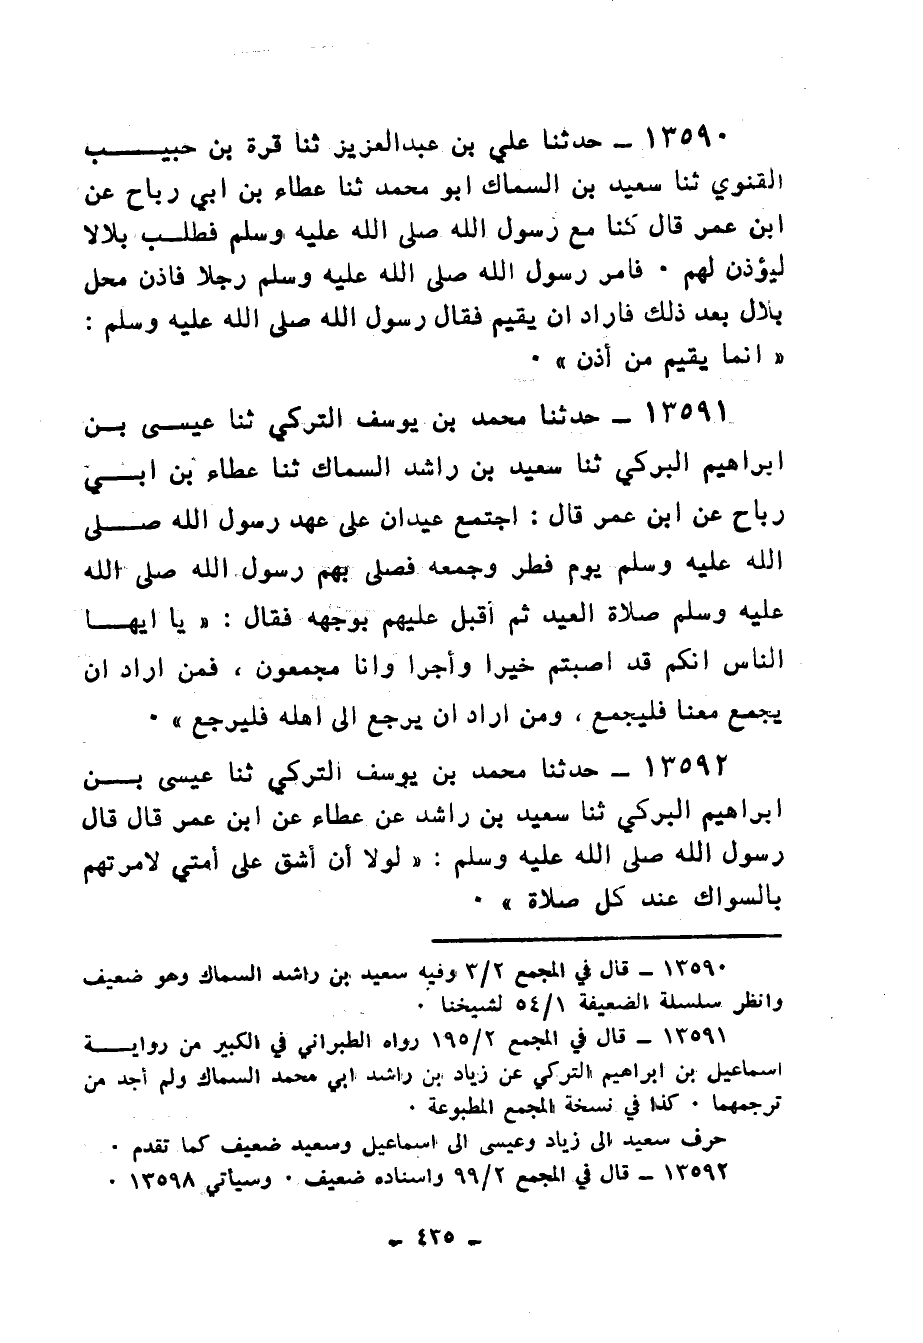 ١٣٥٩٠ ـ حدثنا علي بن عبدالعزيز ثنا قرة بن حبيـــب
القنوي ثنا سعيد بن السماك ابو محمد ثنا عطاء بن ابي رباح عن
ابن عمر قال كنا مع رسول الله صلى الله عليه وسلم فطلـب بلالا
ليؤذن لهم ٠ فامر رسول الله صلى الله عليه وسلم رجلا فاذن محل
بلال بعد ذلك فاراد ان يقيم فقال رسول الله صلى الله عليه وسلم :
« انما يقيم من أذن » ٠
١٣٥٩١ ـ حدثنا محمد بن يوسف التركي ثنا عيسـى بـن
ابراهيم البركي ثنا سعيد بن راشد السماك ثنا عطاء بن ابـــي
رباح عن ابن عمر قال : اجتمع عيدان على عهد رسول الله صــلى
الله عليه وسلم يوم فطر وجمعه فصلى بهم رسول الله صلى الله
عليه وسلم صلاة العيد ثم أقبل عليهم بوجهه فقال : « يا ايهــا
الناس انكم قد اصبتم خيرا وأجرا وانا مجمعون ، فمن اراد ان
يجمع معنا فليجمع ، ومن اراد ان يرجع الى اهله فليرجع » ٠
١٣٥٩٢ ـ حدثنا محمد بن يوسف التركي ثنا عيسى بـــن
ابراهيم البركي ثنا سعيد بن راشد عن عطاء عن ابن عمر قال قال
رسول الله صلى الله عليه وسلم : « لولا أن أشق على أمتي لامرتهم
بالسواك عند كل صلاة » ٠
١٣٥٩٠ ـ قال في المجمع ٣/٢ وفيه سعيد بن راشد السماك وهو ضعيف
وانظر سلسلة الضعيفة ٥٤/١ لشيخنا ٠
١٣٥٩١ ـ قال في المجمع ١٩٥/٢ رواه الطبراني في الكبير من روايــة
اسماعيل بن ابراهيم التركي عن زياد بن راشد ابي محمد السماك ولم أجد من
ترجمهما ٠ كذا في نسخة المجمع المطبوعة ٠
حرف سعيد الى زياد وعيسى الى اسماعيل وسعيد ضعيف كما تقدم ٠
١٣٥٩٢ ـ قال في المجمع ٩٩/٢ واسناده ضعيف ٠ وسيأتي ١٣٥٩٨ ٠
ـ ٤٣٥ ـ